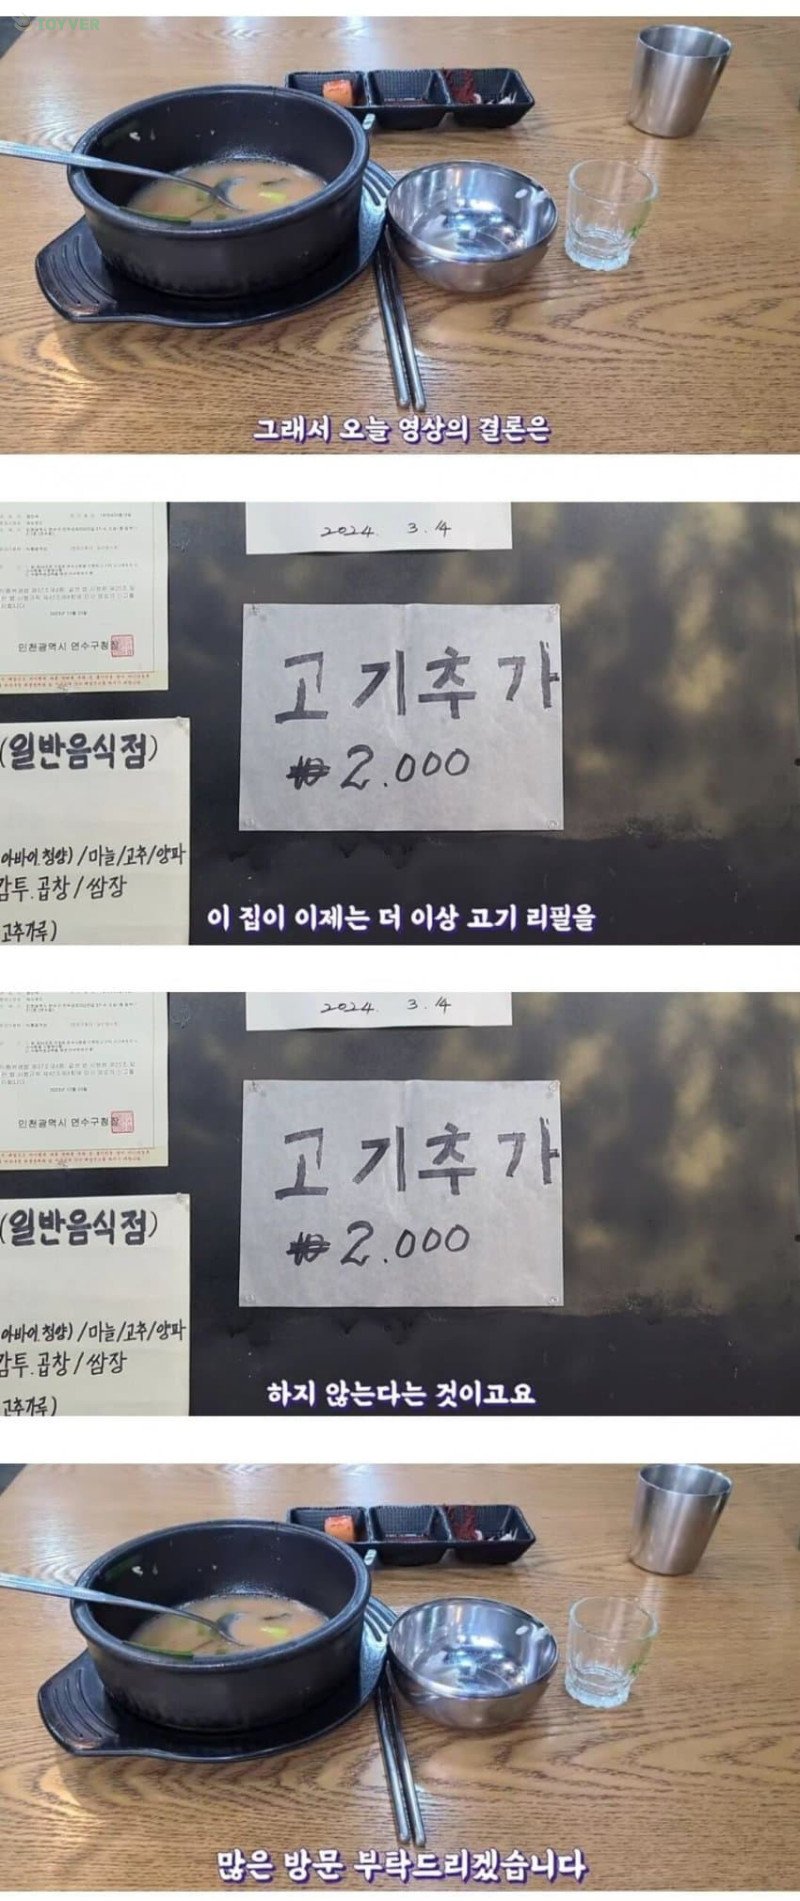 TOYVER
그래서 오늘 영상의 결론은
2024. 3. 14
인천광역시 연수구청장
고기추가
₩2.000
(일반음식점)
아바이.청양) / 마늘/고추/양파
감투.곱창 / 쌈장
고추가루 )
이 집이 이제는 더 이상 고기 리필을
2024. 3. 14
인천광역시 연수구청장
고기추가
₩2.000
(일반음식점)
아바이.청양) / 마늘/고추/양파
감투.곱창 / 쌈장
고추가루 )
하지 않는다는 것이고요
많은 방문 부탁드리겠습니다